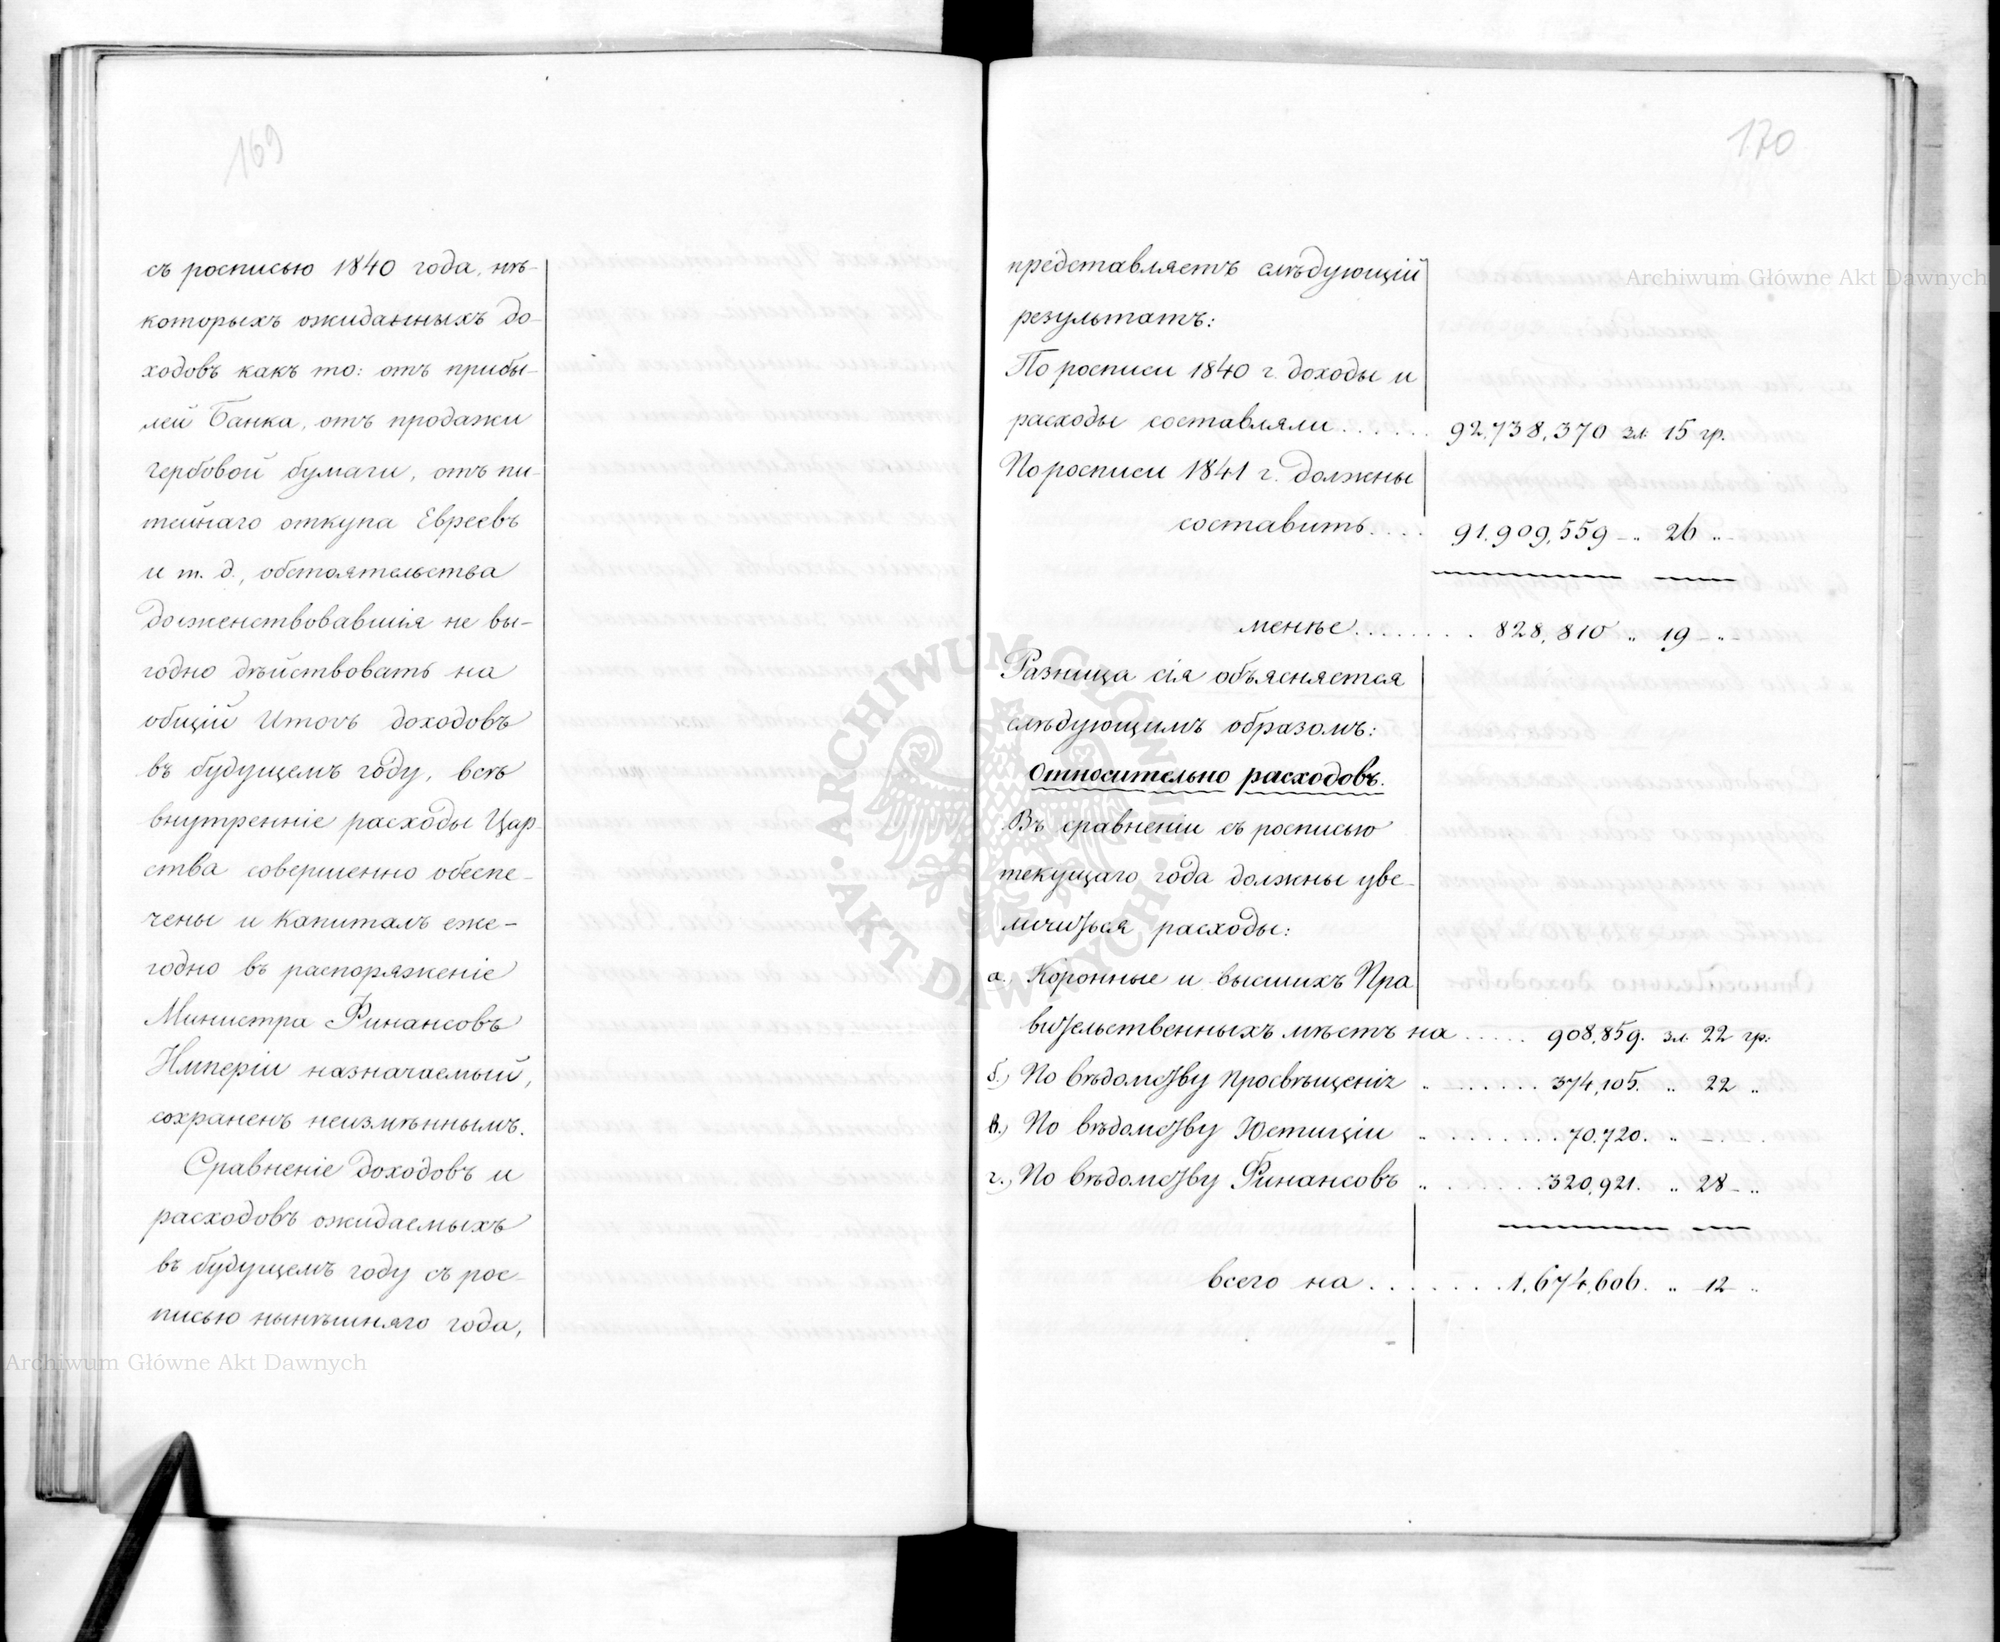 169
съ росписью 1840 года, нѣ-
которыхъ ожиданныхъ до-
ходовъ какъ то: отъ прибы-
лей Банка, отъ продажи
гербовой бумаги, отъ пи-
тейнаго откупа Евреевъ
и т. д., обстоятельства
долженствовавшія не вы-
годно дѣйствовать на
общій Итогъ доходовъ
въ будущемъ году, всѣ
внутренніе расходы Цар-
ства совершенно обеспе-
чены и Капиталъ еже-
годно въ распоряженіе
Министра Финансовъ
Имперіи назначаемый,
сохраненъ неизмѣннымъ.
Сравненіе доходовъ и
расходовъ ожидаемыхъ
въ будущемъ году съ рос-
писью нынѣшняго года,
Archiwum Główne Akt Dawnych
170
Archiwum Główne Akt Dawnych
представляетъ слѣдующій
результатъ:
По росписи 1840 г. доходы и
расходы составляли . . . . . . 92,738,370 зл. 15 гр.
По росписи 1841 г. должны
составить . . . . 91,909,559 – „ 26 „ –
менѣе . . . . . . . . 828,810 „ 19 – „ –
Разница сія объясняется
слѣдующимъ образомъ:
Относительно расходовъ.
Въ сравненіи съ росписью
текущаго года должны уве-
личиться расходы:
а., Коронные и высшихъ Пра
вительственныхъ мѣстъ на . . . . . 908,859. зл. 22 гр:
б., По вѣдомству Просвѣщенія „ . . . . . . . 374,105. „ 22 „
в., По вѣдомству Юстиціи „ . . . . . . . 70,720. „ – . .
г., По вѣдомству Финансовъ „ . . . . . . 320,921. „ 28 – „
всего на . . . . . . . 1,674,606. „ 12 – „
ARCHIWUM GŁÓWNE AKT DAWNYCH